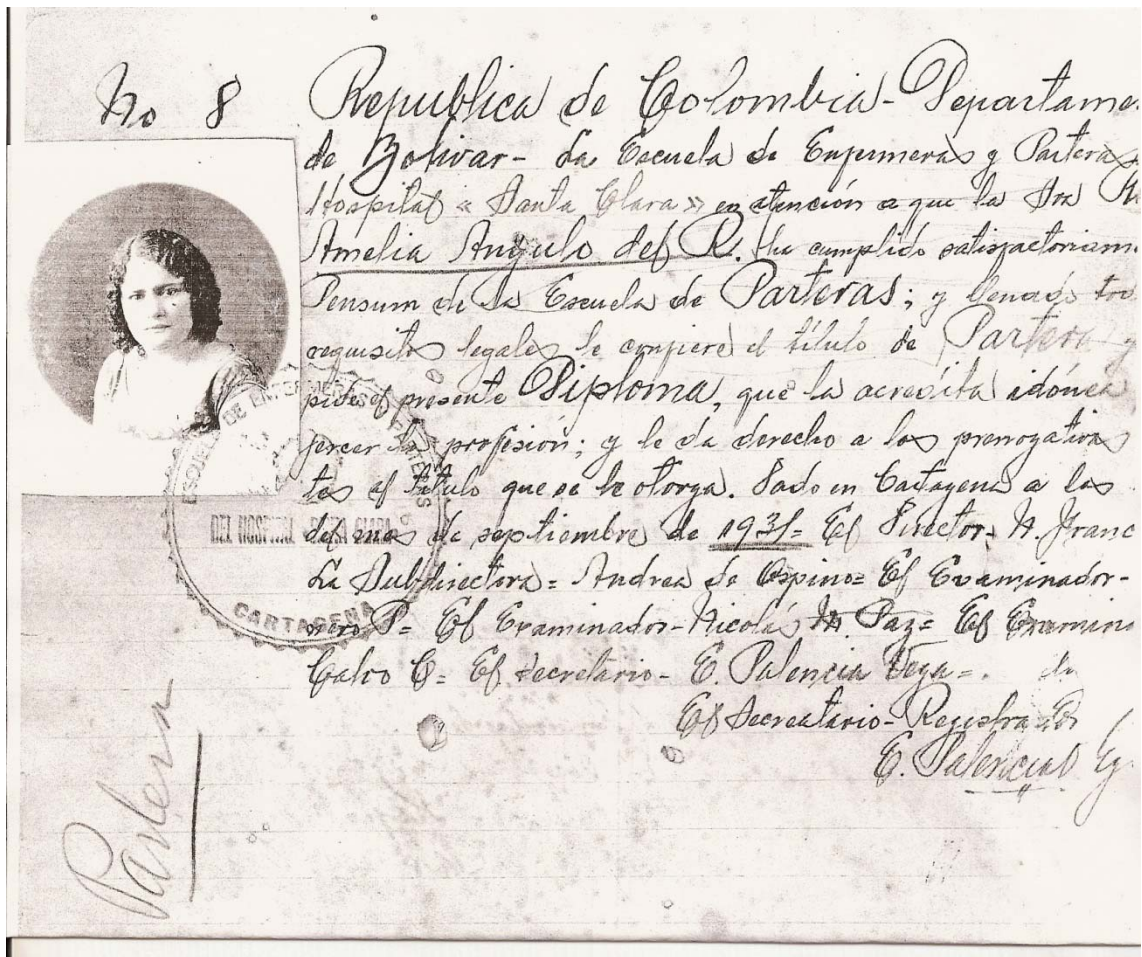 No 8
Republica de Colombia - Departame
de Bolivar - La Escuela de Enfermeras y Parteras
Hospital « Santa Clara » en atención a que la Sra
Amelia Angulo del R. ha cumplido satisfactoriam
Pensum de la Escuela de Parteras; y llenado to
requisitos legales le confiere el título de Partera y
pide el presente Diploma, que la acredita idónea
jercer la profesión; y le da derecho a las prerrogativas
tes al título que se le otorga. Dado en Cartagena a los
del mes de septiembre de 1931= El Director - Franc
La Subdirectora = Andrea de Ospino = El Examinador -
P = El Examinador - Nicolás M. Paz = El Examina
Calvo C = El Secretario - E. Palencia Vega =.
El Secreatario - Registrador
E. Palencia
Partera
ESCUELA DE ENFERMERAS Y PARTERAS
DEL HOSPITAL SANTA CLARA
CARTAGENA